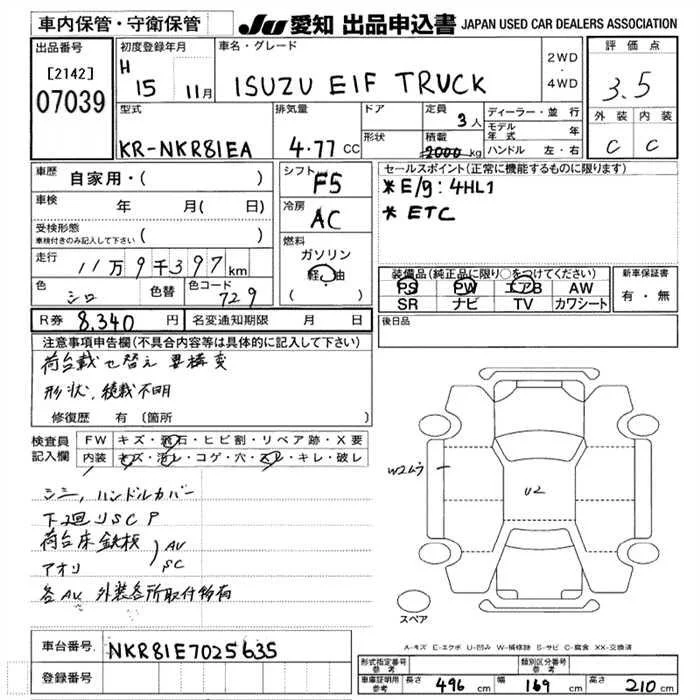 車内保管・守衛保管 JU 愛知 出品申込書 JAPAN USED CAR DEALERS ASSOCIATION
出品番号
[2142]
07039
初度登録年月
H 15 11月
車名・グレード
ISUZU ElF TRUCK
2WD
・
4WD
評価点
3.5
外装 内装
C C
型式
KR-NKR81EA
排気量
4.77 CC
ドア
形状
定員
3人
積載
2000kg
ディーラー・並行
モデル年式 年
ハンドル 左・右
車歴
自家用・( )
車検
年 月( 日)
受検形態
車検付きのみ記入して下さい ( )
走行
11万9千397km
色
シロ
色替
色コード
729
シフト
F5
冷房
AC
燃料
ガソリン
軽油
( )
セールスポイント(正常に機能するものに限ります)
* E/g: 4HL1
* ETC
装備品(純正品に限り○をつけてください)
PS PW エアB AW
SR ナビ TV カワシート
新車保証書
有・無
R券 8,340 円
名変通知期限 月 日
後日品
注意事項申告欄(不具合内容等は具体的に記入して下さい)
荷台載せ替え 要構変
形状、積載不明
修復歴 有 (箇所 )
検査員
記入欄
FW キズ・飛石・ヒビ割・リペア跡・X要
内装 キズ・汚レ・コゲ・穴・スレ・キレ・破レ
シミ, ハンドルカバー
下廻りSC P
荷台床鉄板
アオリ
AU
SC
各AU 外装各所取付
W2
U2
スペア
A-キズ E-エクボ U-凹み W-補修跡 S-サビ C-腐食 XX-交換済
車台番号
NKR81E7025635
登録番号
形式指定番号
参考
類別区分番号
参考
車庫証明用
参考
長さ 496 cm 幅 169 cm 高さ 210 cm